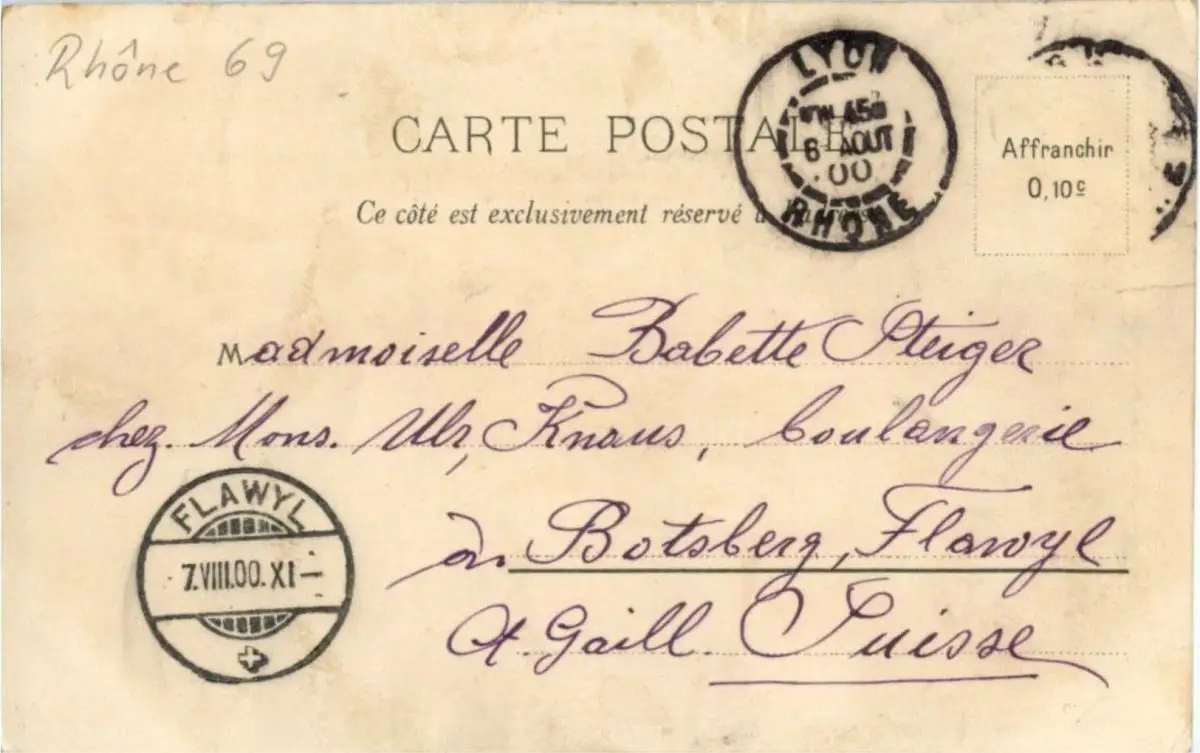 Rhône 69
CARTE POSTALE
Ce côté est exclusivement réservé à l'adresse
LYON
45
6 AOUT
00
RHÔNE
Affranchir
0,10c
Madmoiselle Babette Steiger
chez. Mons. Ulr, Knaus, boulangerie
à Botsberg, Flawyl
St. Gaill. Suisse
FLAWYL
7.VIII.00.XI—